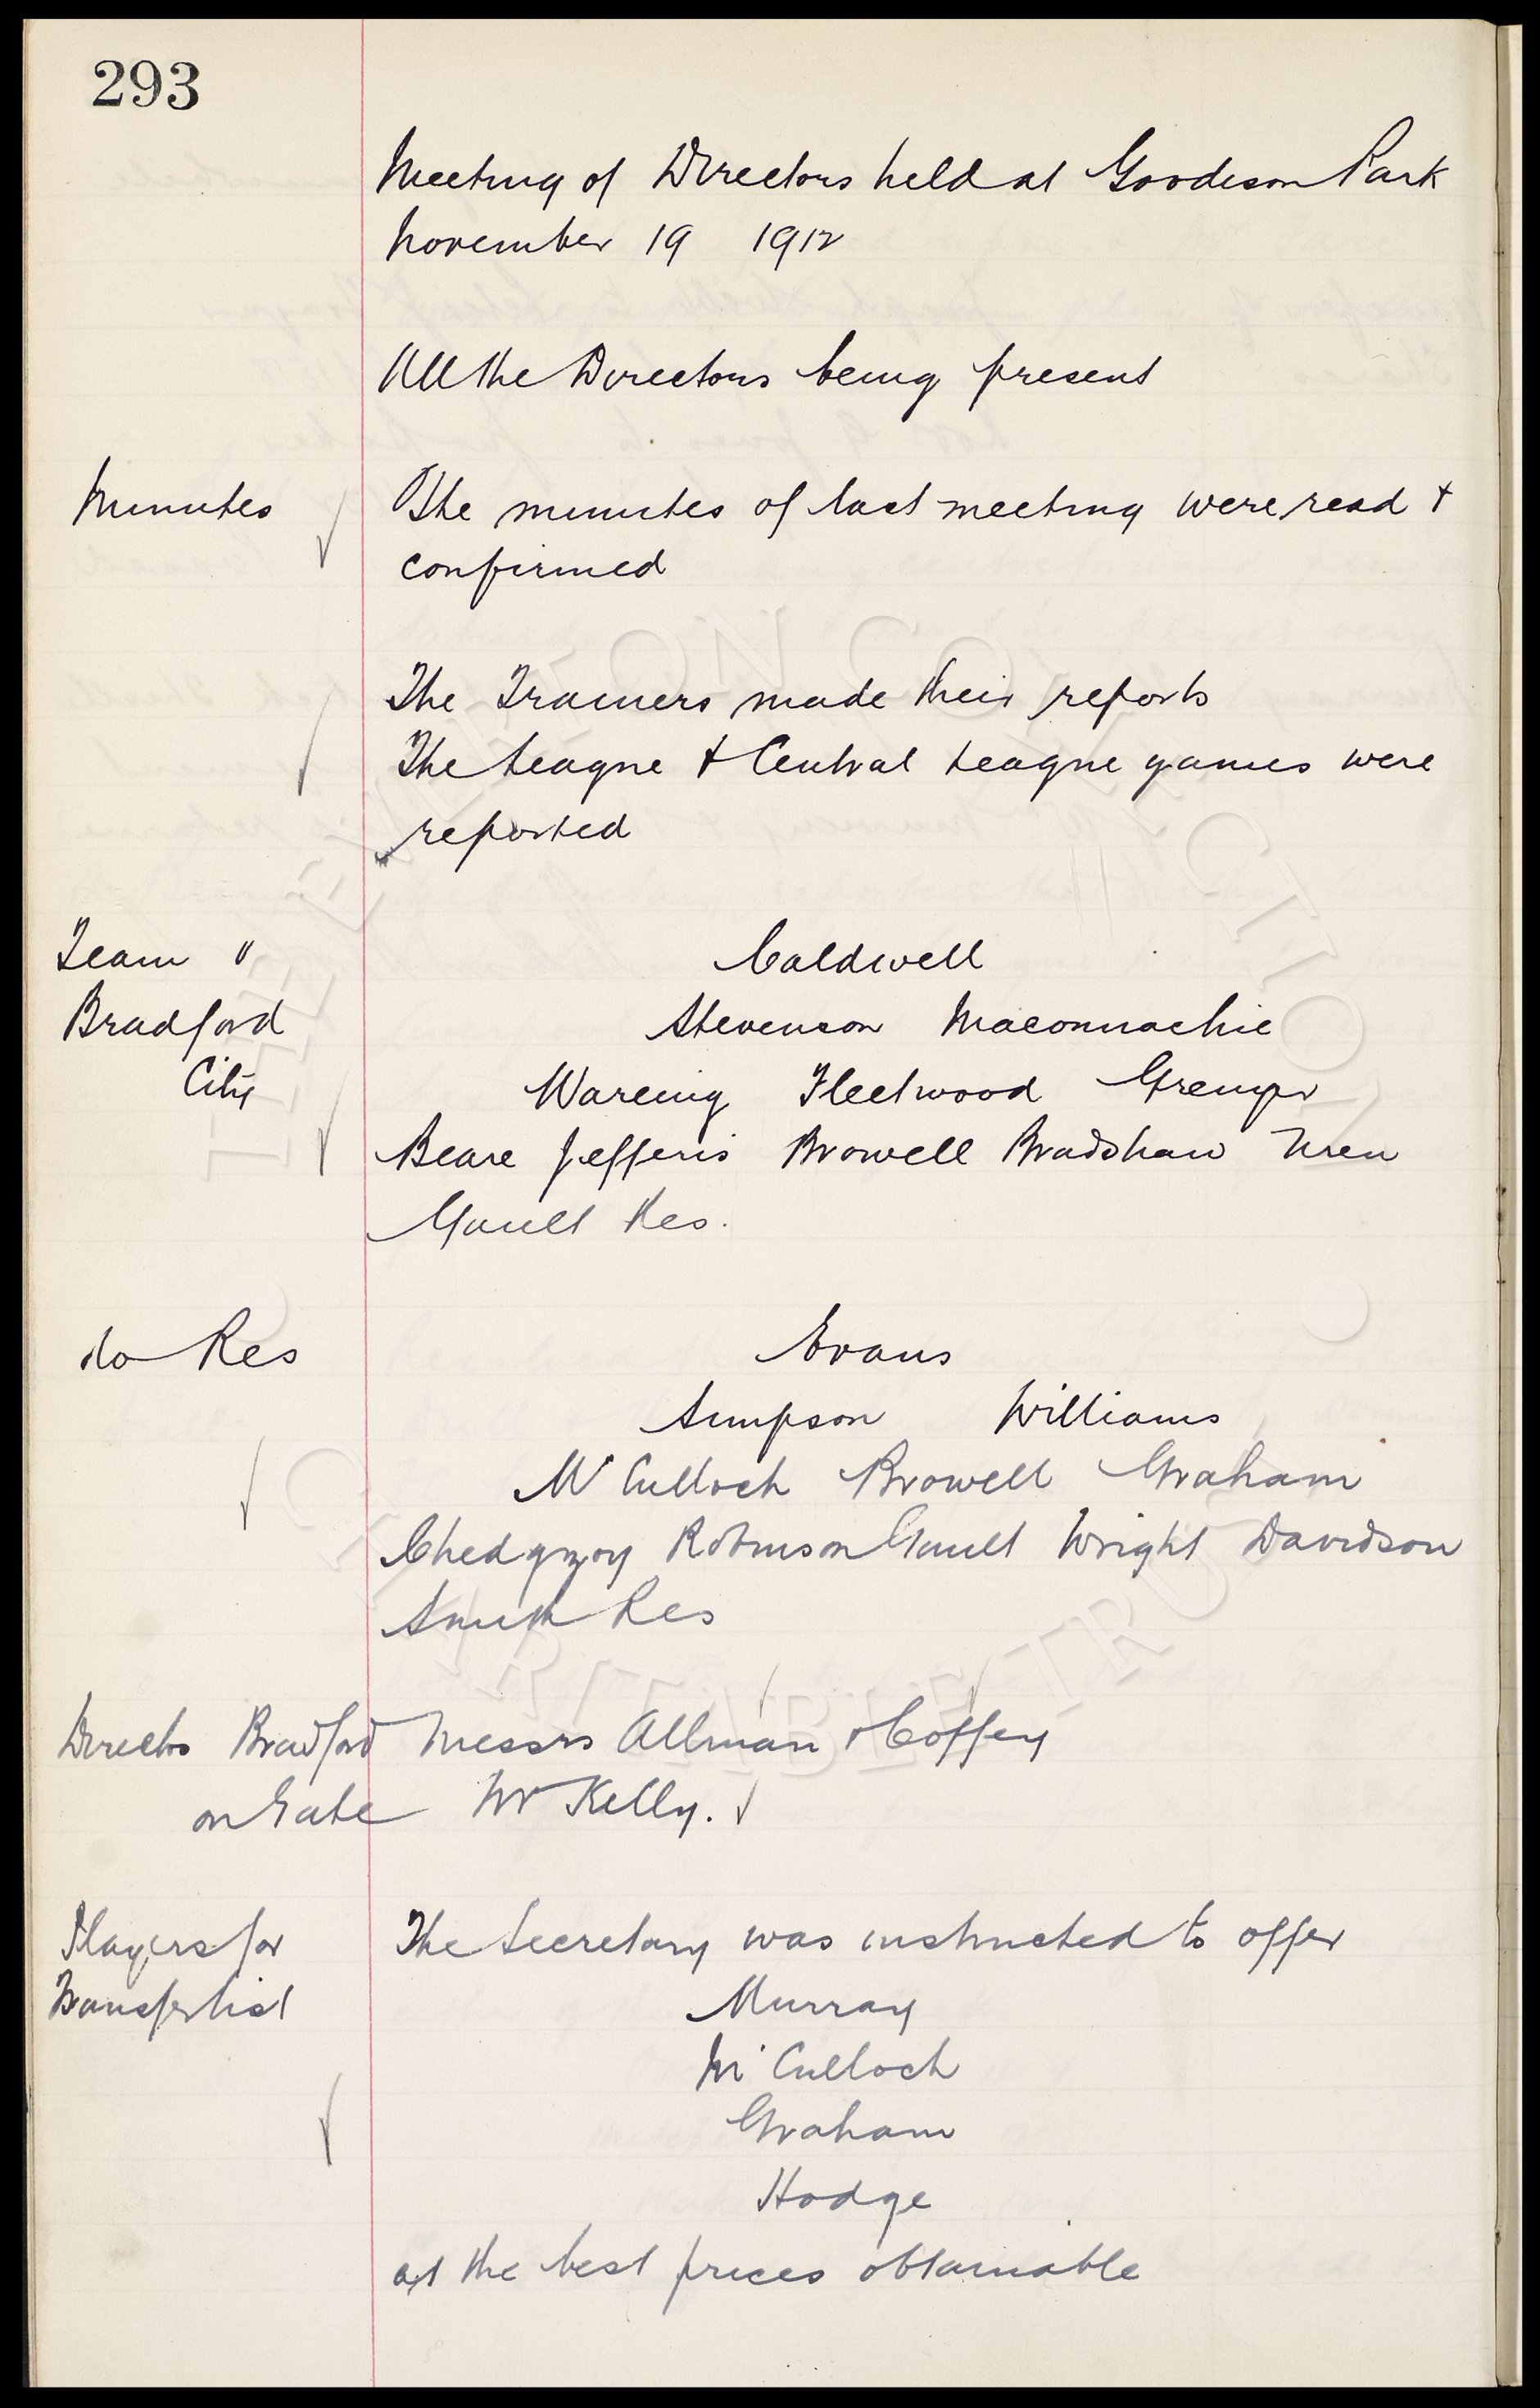 293
Meeting of Directors held at Goodison Park
November 19 1912
All the Directors being present
Minutes
The minutes of last meeting were read +
confirmed
The Trainers made their reports
The League + Central League games were
reported
Team v
Bradford
City
Caldwell
Stevenson Maconnachie
Wareing Fleetwood Grenyer
Beare Jefferis Browell Bradshaw Uren
Gault Res.
do Res
Evans
Simpson Williams
McCulloch Browell Graham
Chedgzoy Robinson Gault Wright Davidson
Smith Res
Directors Bradford Messrs Allman + Coffey
on Gate Mr Kelly.
Players for
Transfer list
The Secretary was instructed to offer
Murray
McCulloch
Graham
Hodge
at the best prices obtainable